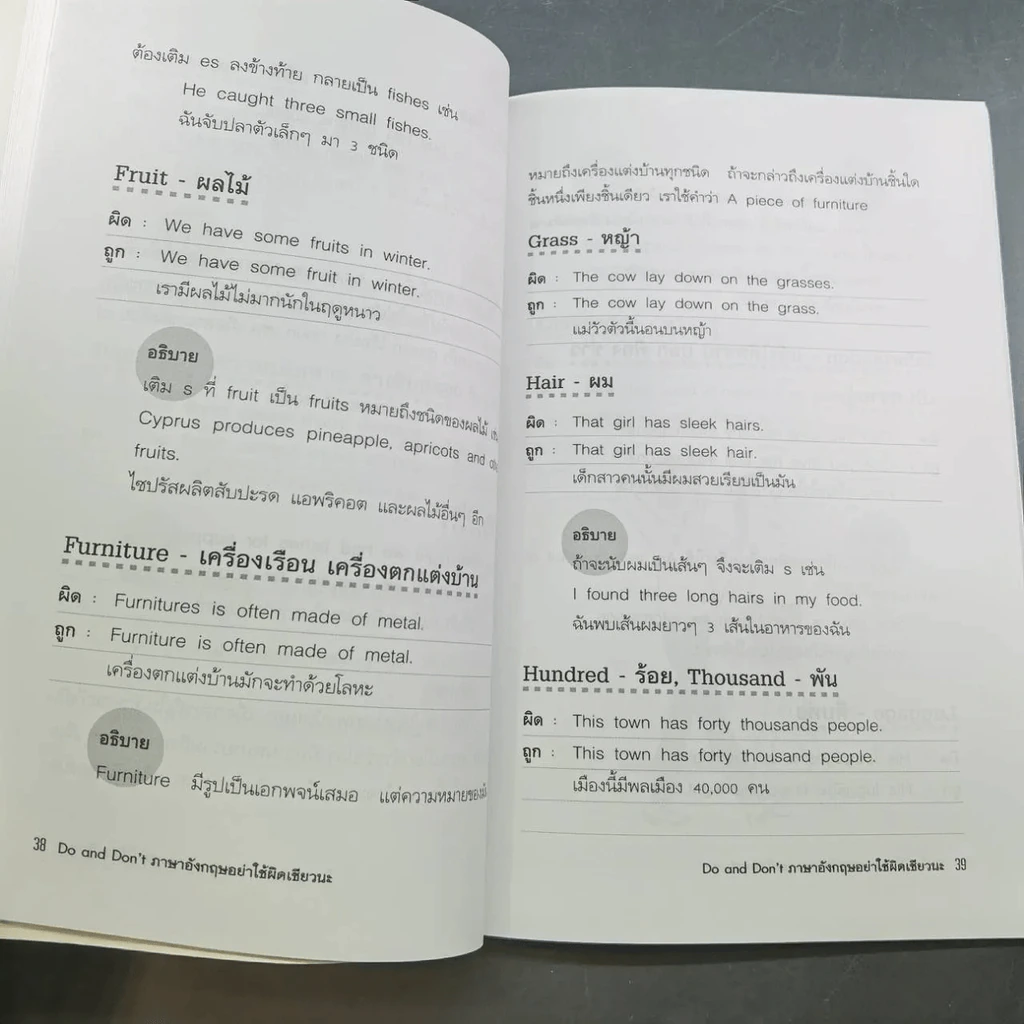 ต้องเติม es ลงข้างท้าย กลายเป็น fishes เช่น
He caught three small fishes.
ฉันจับปลาตัวเล็กๆ มา 3 ชนิด
Fruit - ผลไม้
ผิด : We have some fruits in winter.
ถูก : We have some fruit in winter.
เรามีผลไม้ไม่มากนักในฤดูหนาว
อธิบาย
เติม s ที่ fruit เป็น fruits หมายถึงชนิดของผลไม้
Cyprus produces pineapple, apricots and
fruits.
ไซปรัสผลิตสับปะรด แอพริคอต และผลไม้อื่นๆ อีก
Furniture - เครื่องเรือน เครื่องตกแต่งบ้าน
ผิด : Furnitures is often made of metal.
ถูก : Furniture is often made of metal.
เครื่องตกแต่งบ้านมักจะทำด้วยโลหะ
อธิบาย
Furniture มีรูปเป็นเอกพจน์เสมอ แต่ความหมายของ
38 Do and Don't ภาษาอังกฤษอย่าใช้ผิดเชียวนะ
หมายถึงเครื่องแต่งบ้านทุกชนิด ถ้าจะกล่าวถึงเครื่องแต่งบ้านชิ้นใด
ชิ้นหนึ่งเพียงชิ้นเดียว เราใช้คำว่า A piece of furniture
Grass - หญ้า
ผิด : The cow lay down on the grasses.
ถูก : The cow lay down on the grass.
แม่วัวตัวนี้นอนบนหญ้า
Hair - ผม
ผิด : That girl has sleek hairs.
ถูก : That girl has sleek hair.
เด็กสาวคนนั้นมีผมสวยเรียบเป็นมัน
อธิบาย
ถ้าจะนับผมเป็นเส้นๆ จึงจะเติม s เช่น
I found three long hairs in my food.
ฉันพบเส้นผมยาวๆ 3 เส้นในอาหารของฉัน
Hundred - ร้อย, Thousand - พัน
ผิด : This town has forty thousands people.
ถูก : This town has forty thousand people.
เมืองนี้มีพลเมือง 40,000 คน
Do and Don't ภาษาอังกฤษอย่าใช้ผิดเชียวนะ 39